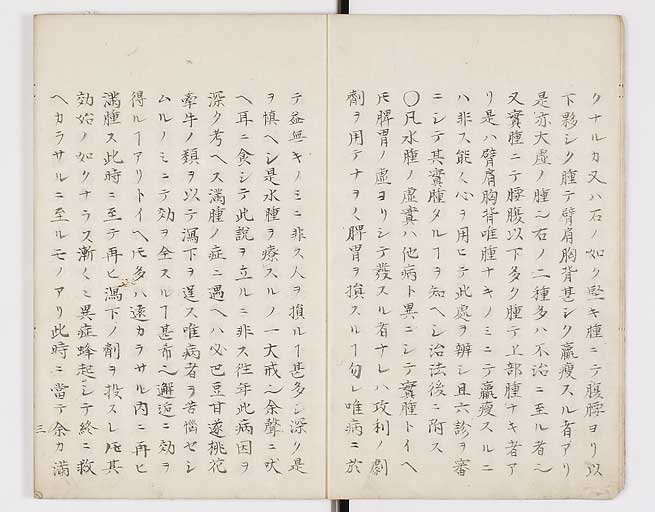 クナルカ又ハ石ノ如ク堅キ腫ニテ腹脖ヨリ以
下夥シク腫テ臂肩胸背甚シク羸瘦スル者アリ
是亦大虚ノ腫也右ノ二種多ハ不治ニ至ル者也
又實腫ニテ腰腹以下多ク腫テ上部腫ナキ者ア
リ是ハ臂肩胸背唯腫ナキノミニテ羸瘦スルニ
ハ非ス能ク心ヲ用ヒテ此處ヲ辨シ且六診ヲ審
ニシテ其實腫タルヿヲ知ヘシ治法後ニ附ス
〇凡水腫ノ虚實ハ他病ト異ニシテ實腫トイヘ
𪜈脾胃ノ虚ヨリシテ發スル者ナレハ攻利ノ劇
劑ヲ用テナヲ〱脾胃ヲ損スルヿ勿レ唯病ニ於
テ益無キノミニ非ス人ヲ損ルヿ甚多シ深ク是
ヲ慎ヘシ是水腫ヲ療スルノ一大戒也余聲ニ吠
ヘ耳ニ食シテ此説ヲ立ルニ非ス往年此病因ヲ
深ク考ヘス滿腫ノ症ニ遇ヘハ必巴豆甘遂桃花
牽牛ノ類ヲ以テ瀉下ヲ逞ス唯病者ヲ苦惱セシ
ムルノミニテ効ヲ全スルヿ甚希也邂逅ニ効ヲ
得ルヿアリトイヘ𪜈多ハ遠カラサル内ニ再ヒ
滿腫ス此時ニ至テ再ヒ瀉下ノ劑ヲ投スレ𪜈其
効始ノ如クナラス漸〱ニ異症蜂起シテ終ニ救
ヘカラサルニ至ルモノアリ此時ニ當テ余カ滿
三